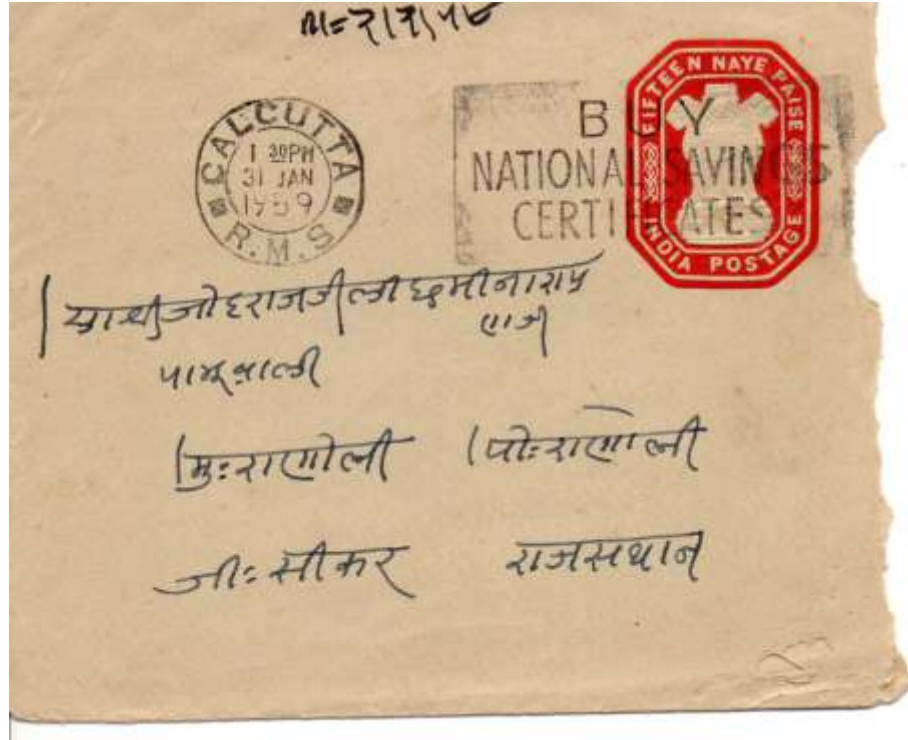 CALCUTTA
1 30PM
31 JAN
1959
R.M.S
BUY
NATIONAL SAVINGS
CERTIFICATES
FIFTEEN NAYE PAISE
INDIA POSTAGE
जोहराजजी लीछमीनाराय
णजी
मु:राणोली पो:राणोली
जी:सीकर राजसथान